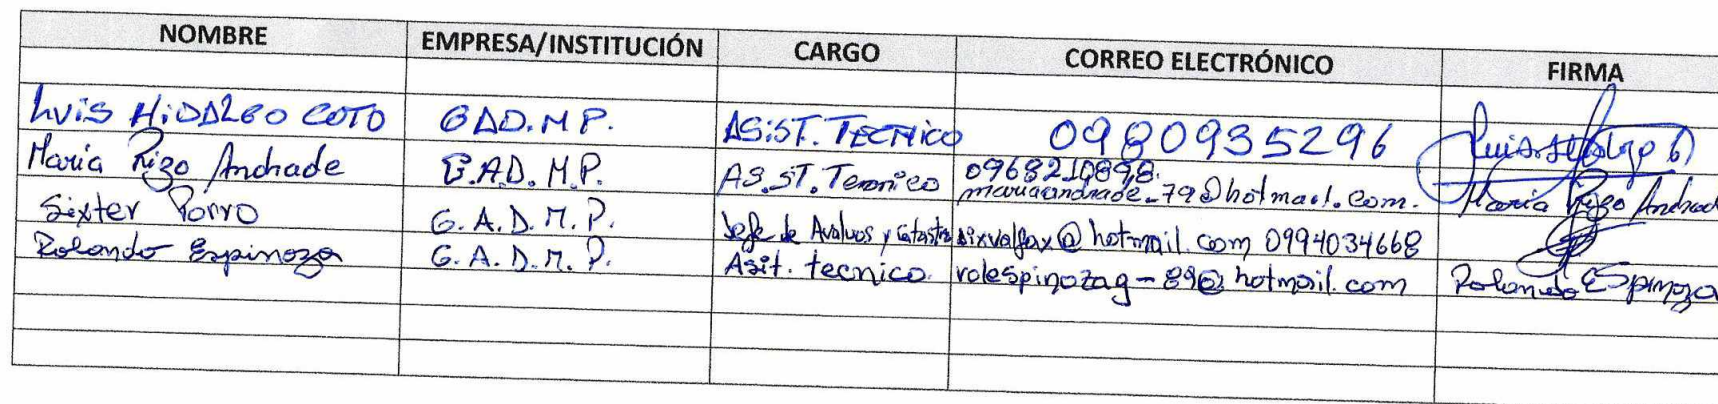 NOMBRE EMPRESA/INSTITUCIÓN CARGO CORREO ELECTRÓNICO FIRMA
Luis HiDALGO COTO GAD.M.P. ASiST. TECNico 0980935296 Luis Hidalgo
María Rizo Andrade G.A.D. M.P. AS.ST. Tecnico 0968210898. mariaandrade_79@hotmail.com. María Rizo Andrad
Sixter Porro G.A.D.M.P. Jefe de Avaluos y Catastro sixvalfax@hotmail.com 0994034668
Rolando Espinoza G.A.D.M.P. Asit. tecnico. rolespinozag-89@hotmail.com Rolando Espinoza